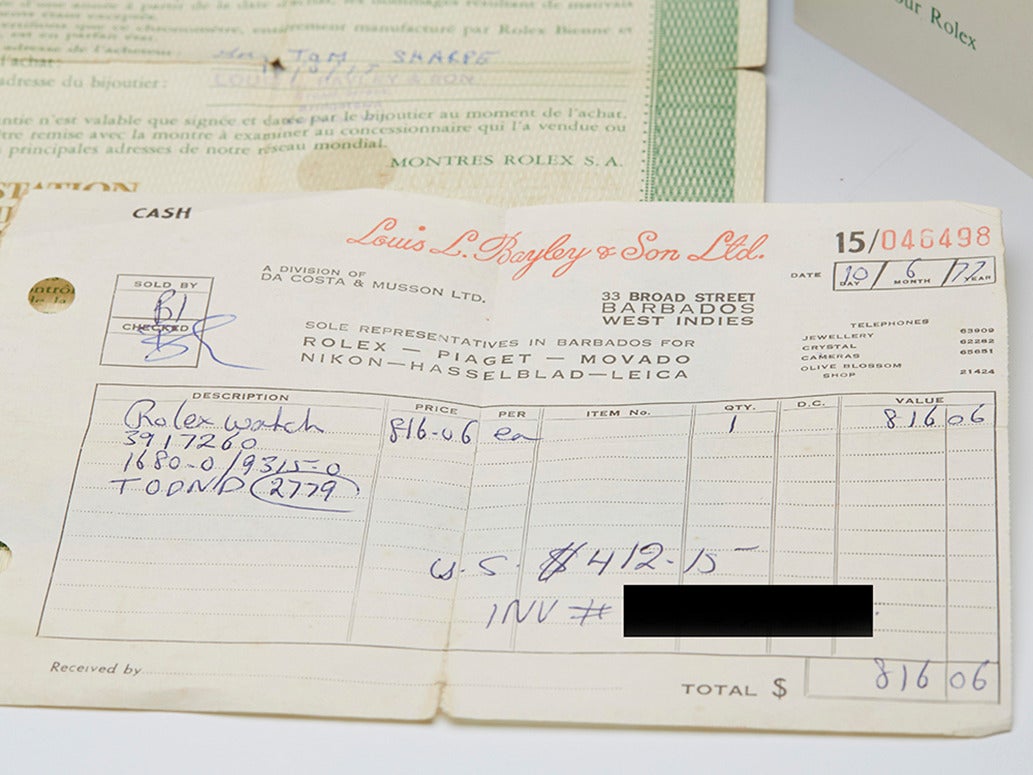 d'une année à partir de la date d'achat, les dommages résultant de mauvais
étant exceptés.
certifions que ce chronomètre, entièrement manufacturé par Rolex Bienne et
est en parfait état.
adresse de l'acheteur: TOM SHARPE
d'achat:
adresse du bijoutier: LOUIS L. BAYLEY & SON
ntie n'est valable que signée et datée par le bijoutier au moment de l'achat.
être remise avec la montre à examiner au concessionnaire qui l'a vendue ou
principales adresses de notre réseau mondial.
MONTRES ROLEX S.A.
our Rolex
STATION
CASH
Louis L. Bayley & Son Ltd.
15/046498
A DIVISION OF
DA COSTA & MUSSON LTD.
33 BROAD STREET
BARBADOS
WEST INDIES
DATE 10 / 6 / 77
DAY MONTH YEAR
SOLD BY
CHECKED
ntrôl
le la
SOLE REPRESENTATIVES IN BARBADOS FOR
ROLEX — PIAGET — MOVADO
NIKON—HASSELBLAD—LEICA
TELEPHONES
JEWELLERY 63909
CRYSTAL 62282
CAMERAS 65651
OLIVE BLOSSOM
SHOP 21424
DESCRIPTION PRICE PER ITEM No. QTY. D.C. VALUE
Rolex watch 816-06 ea 1 816 06
3917260
1680-0/9315-0
TODND 2779
U.S. $412-15
INV #
Received by
TOTAL $ 816 06